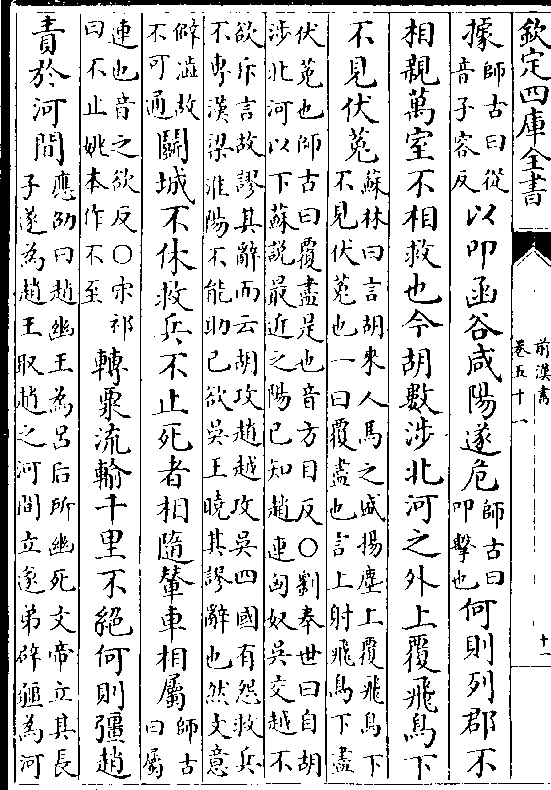 欽定四庫全書
前漢書
卷五十一
十一
據師古曰從音子容反以叩函谷咸陽遂危師古曰叩擊也何則列郡不
相親萬室不相救也今胡數涉北河之外上覆飛鳥下
不見伏菟蘇林曰言胡來人馬之盛揚塵上覆飛鳥下不見伏菟也一曰覆盡也言上射飛鳥下盡
伏菟也師古曰覆盡是也音方目反○劉奉世曰自胡涉北河以下蘇說最近之陽已知趙連匈奴吳交越不
欲斥言故謬其辭而云胡攻趙越攻吳四國有怨救兵不專漢梁淮陽不能助己欲吳王曉其謬辭也然文意
僻澁故不可通鬭城不休救兵不止死者相隨輦車相屬師古曰屬
連也音之欲反○宋祁曰不止姚本作不至轉粟流輸千里不絕何則彊趙
責於河間應劭曰趙幽王為呂后所幽死文帝立其長子遂為趙王取趙之河間立遂弟辟疆為河